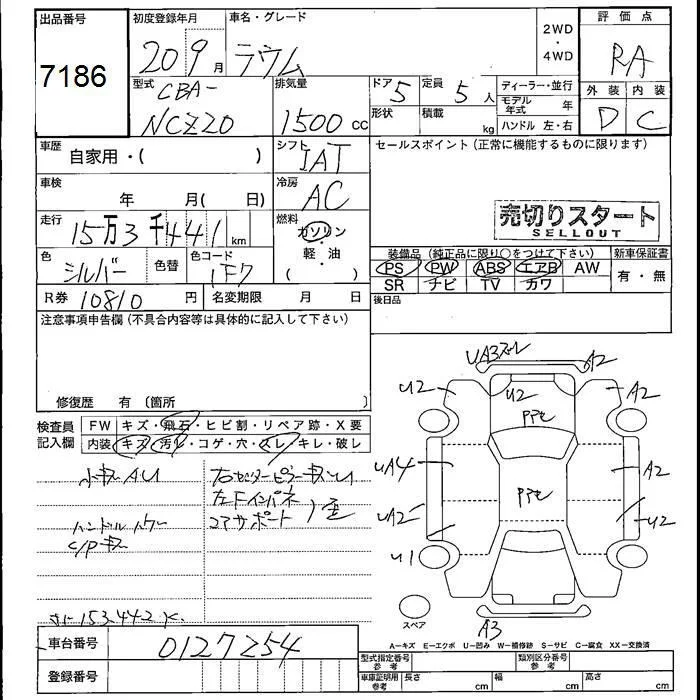 出品番号 初度登録年月 車名・グレード 2WD・4WD 評価点
7186 20 9月 ラウム RA
型式 排気量 ドア 定員 ディーラー・並行 外装 内装
CBA- 5 5人 モデル年式 年 D C
NCZ20 1500cc 形状 積載 kg ハンドル 左・右
車歴 自家用・( ) シフト IAT セールスポイント(正常に機能するものに限ります)
車検 年 月( 日) 冷房 AC
売切りスタート
SELLOUT
走行 15万3千441km 燃料 ガソリン・軽・油 ( )
装備品(純正品に限り○をつけて下さい) 新車保証書
色 シルバー 色替 色コード 1F7 PS PW ABS エアB AW 有・無
SR ナビ TV カワ
R券 10810円 名変期限 月 日 後日品
注意事項申告欄(不具合内容等は具体的に記入して下さい)
修復歴 有 〔箇所 〕
検査員記入欄 FW キズ・飛石・ヒビ割・リペア跡・X要
内装 キズ・汚レ・コゲ・穴・スレ・キレ・破レ
小キズAU 右センターピラーキズ
左Fインパネ
ハンドル コアサポート
C/Pキズ
153442K
UA3 A2
U2 U2 A2
PPC
UA4 A2
PPC
UA2 U2
U1
スペア A3
A-キズ E-エクボ U-凹み W-補修跡 S-サビ C-腐食 XX-交換済
車台番号 0127254
登録番号
型式指定番号 参考 類別区分番号 参考
車庫証明用 参考 長さ cm 幅 cm 高さ cm